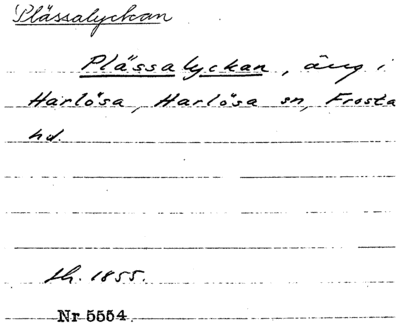 Plässalyckan
Plässalyckan, äng i
Harlösa, Harlösa sn, Frosta
hd.
lh. 1855.
Nr 5554